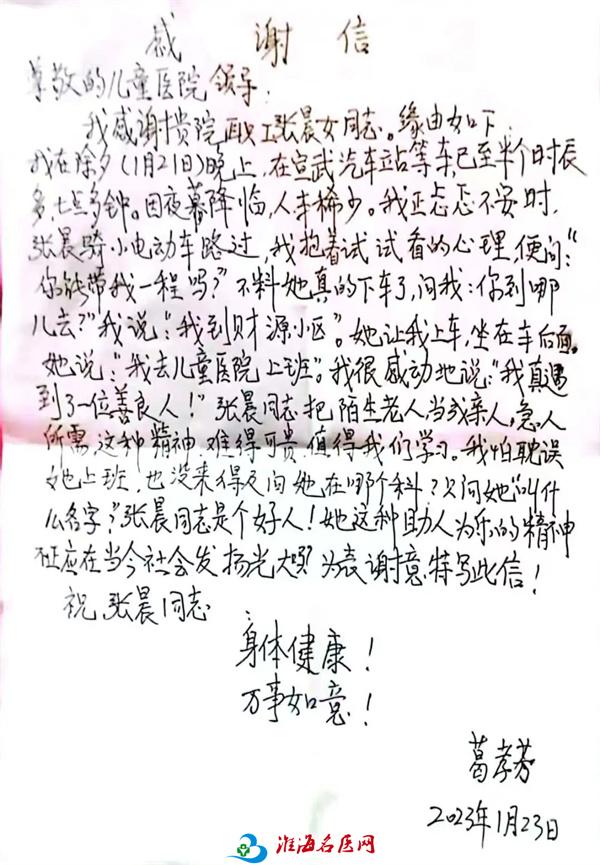 感 谢 信
尊敬的儿童医院领导:
我感谢贵院职工张晨女同志。缘由如下:
我在除夕(1月21日)晚上,在宣武汽车站等车,已至半个时辰
多,七点多钟。因夜幕降临,人车稀少。我正忐忑不安时,
张晨骑小电动车路过,我抱着试试看的心理,便问:“
你能带我一程吗?”不料她真的下车了,问我:你到哪
儿去?”我说:“我到财源小区”。她让我上车,坐在车后面。
她说:“我去儿童医院上班”。我很感动地说:“我真遇
到了一位善良人!”张晨同志把陌生老人当成亲人,急人
所需,这种精神,难得可贵,值得我们学习。我怕耽误
她上班,也没来得及问她在哪个科?只问她“叫什
么名字?”张晨同志是个好人!她这种助人为乐的精神
应在当今社会发扬光大!为表谢意,特写此信!
祝张晨同志
身体健康!
万事如意!
葛孝芬
2023年1月23日
淮海名医网